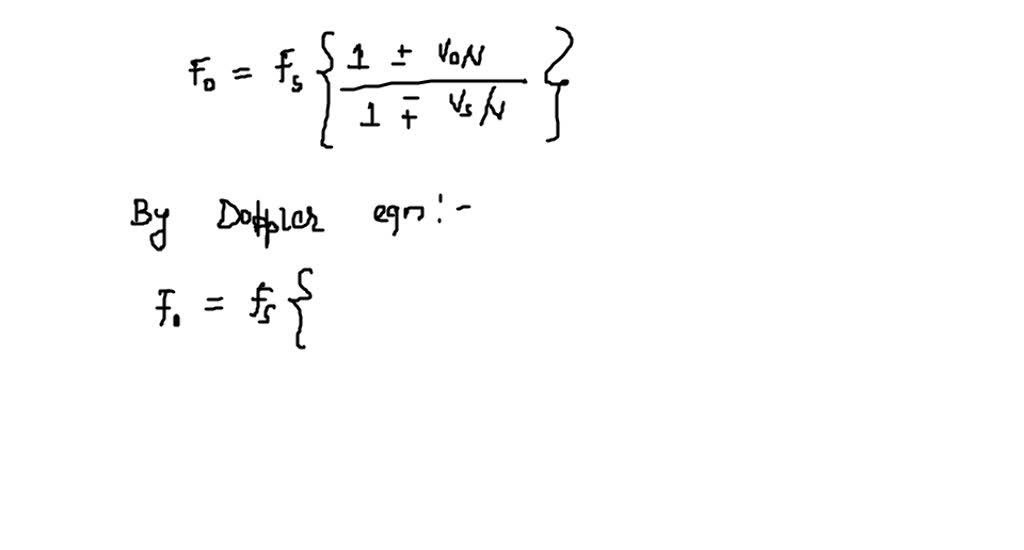 F₀ = fₛ { 1 ± v₀/v / 1 ∓ vₛ/v }
By Dopplar eqn :-
F₀ = fₛ {